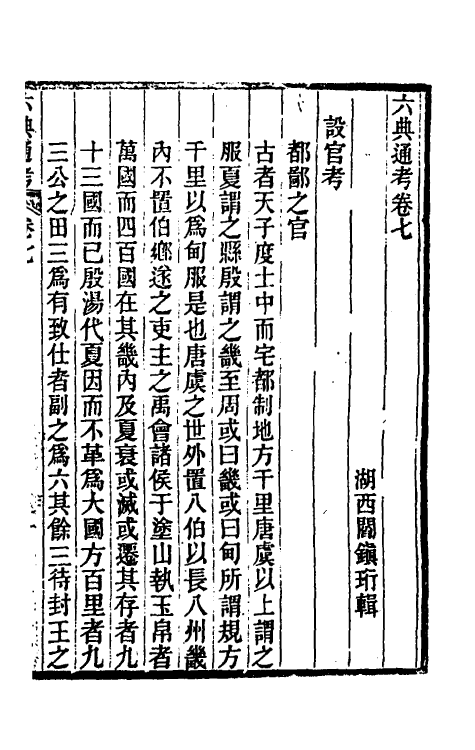 六典通考卷七
湖西閻鎮珩輯
設官考
都鄙之官
古者天子度土中而宅都制地方千里唐虞以上謂之
服夏謂之縣殷謂之畿至周或曰畿或曰甸所謂規方
千里以為甸服是也唐虞之世外置八伯以長八州畿
內不置伯鄉遂之吏主之禹會諸侯于塗山執玉帛者
萬國而四百國在其畿內及夏衰或滅或遷其存者九
十三國而已殷湯代夏因而不革為大國方百里者九
三公之田三為有致仕者副之為六其餘三待封王之
六典通考
卷七